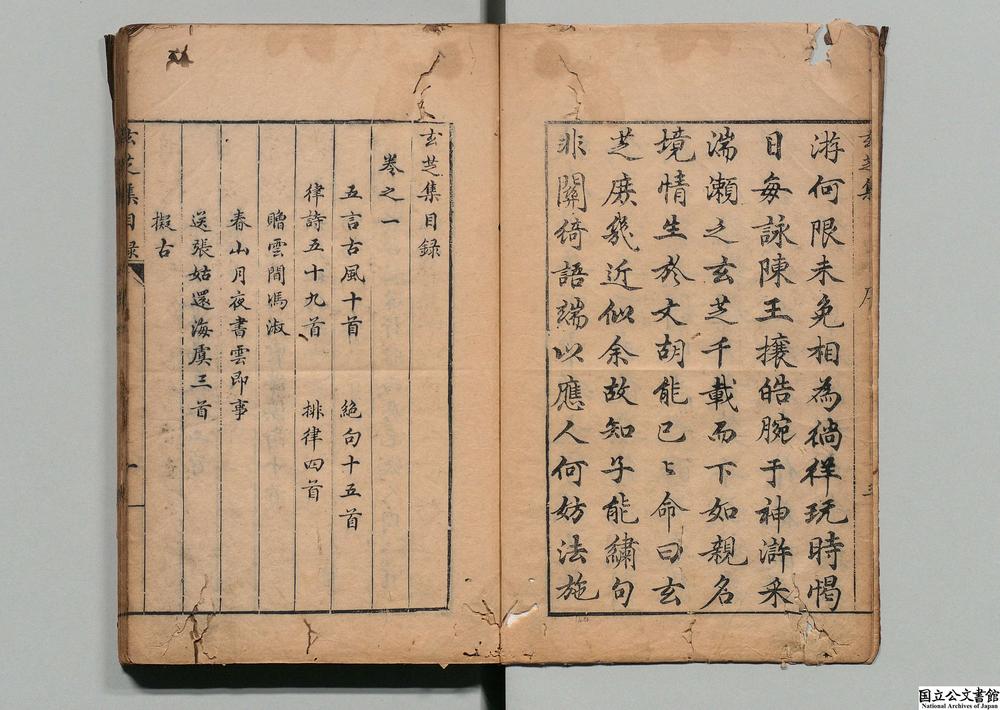 玄芝集　序　三
游何限未免相為徜徉玩時愒
日每詠陳王攘皓腕于神滸采
湍瀨之玄芝千載而下如親名
境情生於文胡能已已命曰玄
芝庶幾近似余故知子能繡句
非關綺語端以應人何妨法施
玄芝集目録
卷之一
五言古風十首　絶句十五首
律詩五十九首　排律四首
贈雲間馮淑
春山月夜書雲即事
送張姑還海虞三首
擬古
玄芝集目録　一
国立公文書館
National Archives of Japan